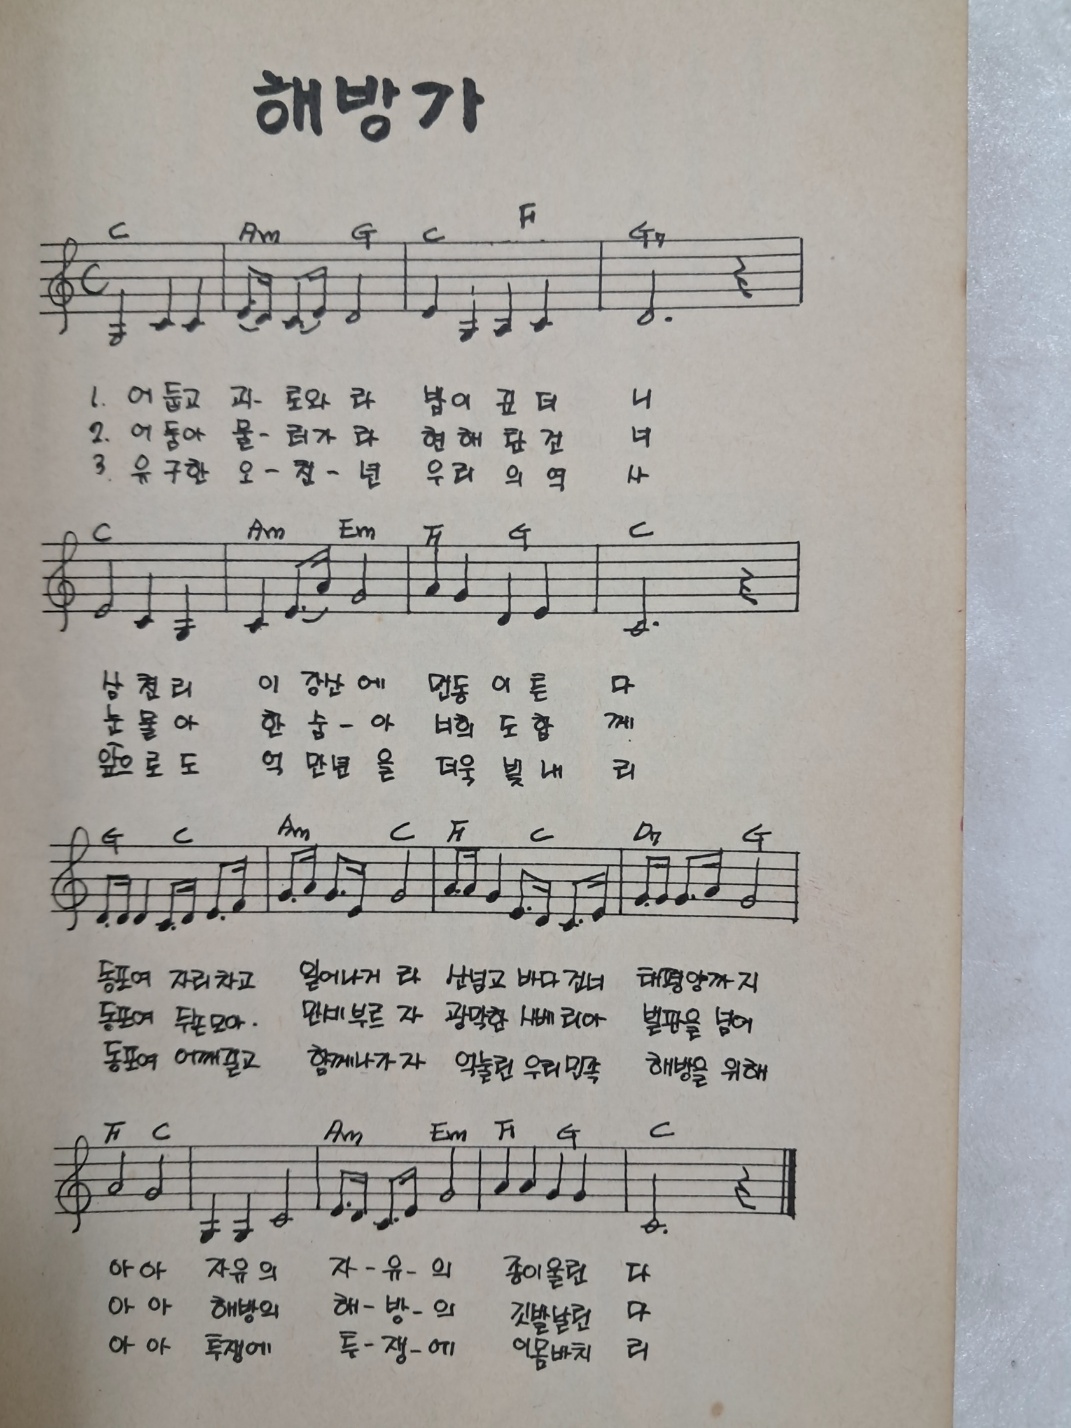 해방가
C Am G C F G7
1. 어둡고 괴- 로와 라 밤이 깊 더 니
2. 어둠아 물- 러가 라 현 해 탄 건 너
3. 유구한 오- 천- 년 우리 의 역 사
C Am Em F G C
삼 천 리 이 강산 에 먼동 이 튼 다
눈 물 아 한 숨- 아 너희 도 함 께
앞으로 도 억 만년 을 더욱 빛 내 리
G C Am C F C D7 G
동포여 자리차고 일어나거 라 산넘고 바다건너 태평양까 지
동포여 두손모아. 만세부르 자 광막한 시베 리아 벌판을 넘어
동포여 어깨걸고 함께나가 자 억눌린 우리민족 해방을 위해
F C Am Em F G C
아 아 자유 의 자- 유- 의 종이울린 다
아 아 해방의 해- 방- 의 깃발날린 다
아 아 투쟁에 투- 쟁- 에 이몸바치 리